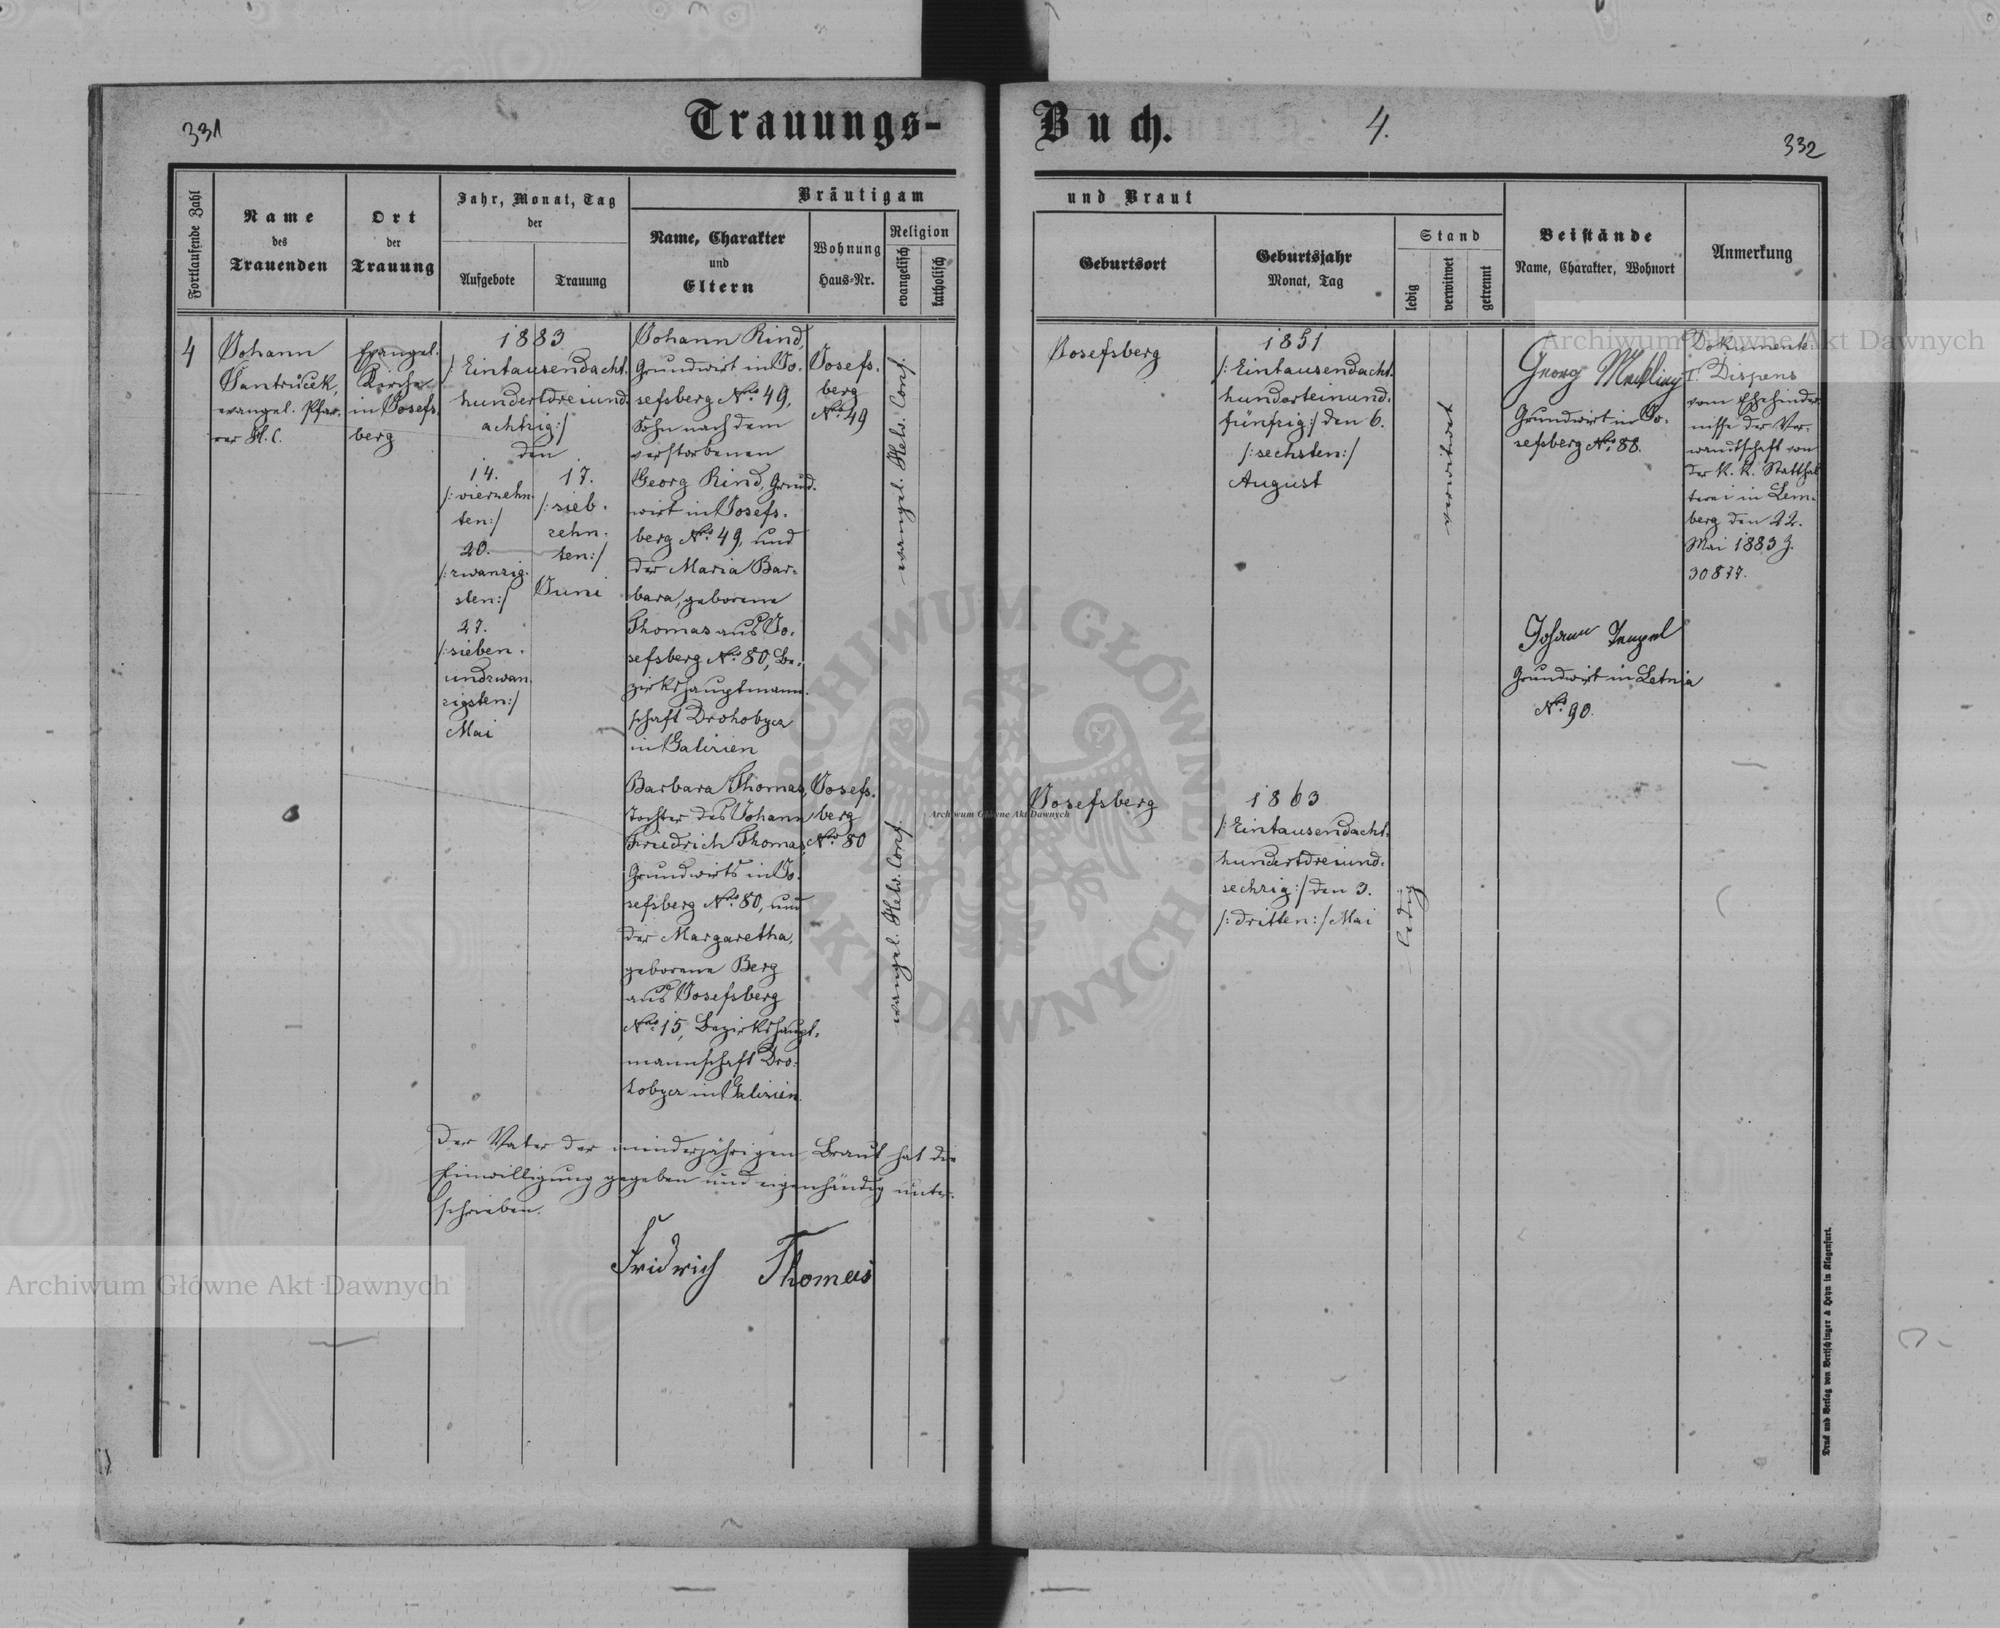 331
Trauungs-
Buch.
4.
332
Fortlaufende Zahl
Name
des
Trauenden
Ort
der
Trauung
Jahr, Monat, Tag
der
Aufgebote
Trauung
Bräutigam
Name, Charakter
und
Eltern
Wohnung
Haus-Nr.
Religion
evangelisch
katholisch
und Braut
Geburtsort
Geburtsjahr
Monat, Tag
Stand
ledig
verwitwet
getrennt
Beistände
Name, Charakter, Wohnort
Anmerkung
4
Johann
Jantůček,
evangel. Pfar-
rer H. C.
Evangel.
Kirche
in Josefs
berg
1883
/: Eintausendacht.
hundertdreiund.
achtzig :/
den
14.
/: vierzehn.
ten :/
20.
/: zwanzig.
sten :/
27.
/: sieben.
undzwan.
zigsten :/
Mai
17.
/: sieb.
zehn.
ten :/
Juni
Johann Rind,
Grundwirt in Jo.
sefsberg Nro. 49,
Sohn nach dem
verstorbenen
Georg Rind, Grund.
wirt in Josefs.
berg Nro. 49, und
der Maria Bar.
bara, geborene
Thomas aus Jo.
sefsberg Nro. 80, Be.
zirkshauptmann.
schaft Drohobycz
in Galizien
Josefs.
berg
Nro. 49
evangel. Helv. Conf.
Josefsberg
1851
/: Eintausendacht.
hunderteinund.
fünfzig :/ den 6.
/: sechsten :/
August
verwitwet
Georg Mecklling
Grundwirt in Jo.
sefsberg Nro. 88.
Johann Tempel
Grundwirt in Letnia
Nro. 90.
Dokumente:
I. Dispens
vom Ehehinder
nisse der Ver.
wandtschaft von
der k. k. Statthal
terei in Lem.
berg den 22.
Mai 1883 Z.
30877.
Barbara Thomas,
Tochter des Johann
Friedrich Thomas,
Grundwirts in Jo.
sefsberg Nro. 80, und
der Margaretha,
geborene Berg
aus Josefsberg
Nro. 15, Bezirkshaupt.
mannschaft Dro.
hobycz in Galizien.
Josefs.
berg
Nro. 80
evangel. Helv. Conf.
Josefsberg
1863
/: Eintausendacht.
hundertdreiund.
sechzig :/ den 3.
/: dritten :/ Mai
ledig
Der Vater der minderjährigen Braut hat die
Einwilligung gegeben und eigenhändig unter.
schrieben.
Fridrich Thomas
Druck und Verlag von Bertschinger & Heyn in Klagenfurt.
Archiwum Główne Akt Dawnych
Archiwum Główne Akt Dawnych
Archiwum Główne Akt Dawnych
ARCHIWUM GŁÓWNE
AKT DAWNYCH